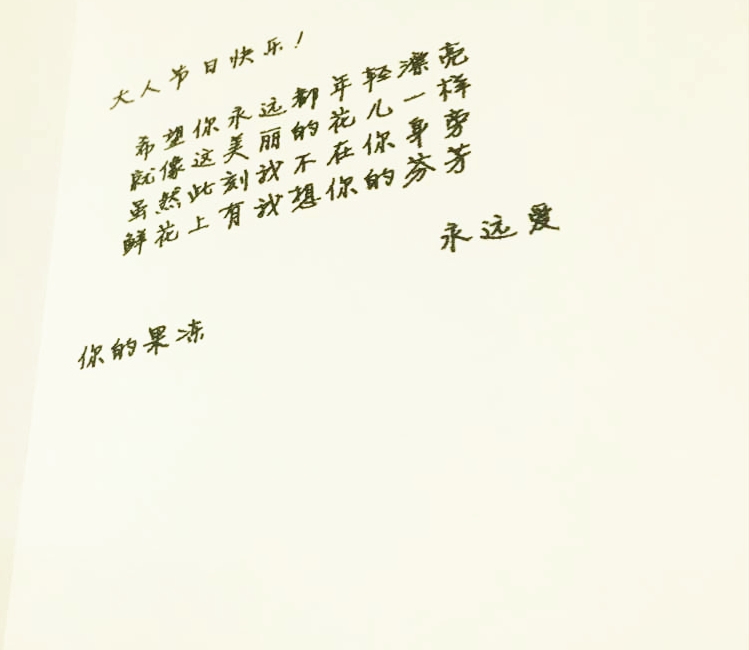 大人节日快乐!
希望你永远都年轻漂亮
就像这美丽的花儿一样
虽然此刻我不在你身旁
鲜花上有我想你的芬芳
永远爱
你的果冻